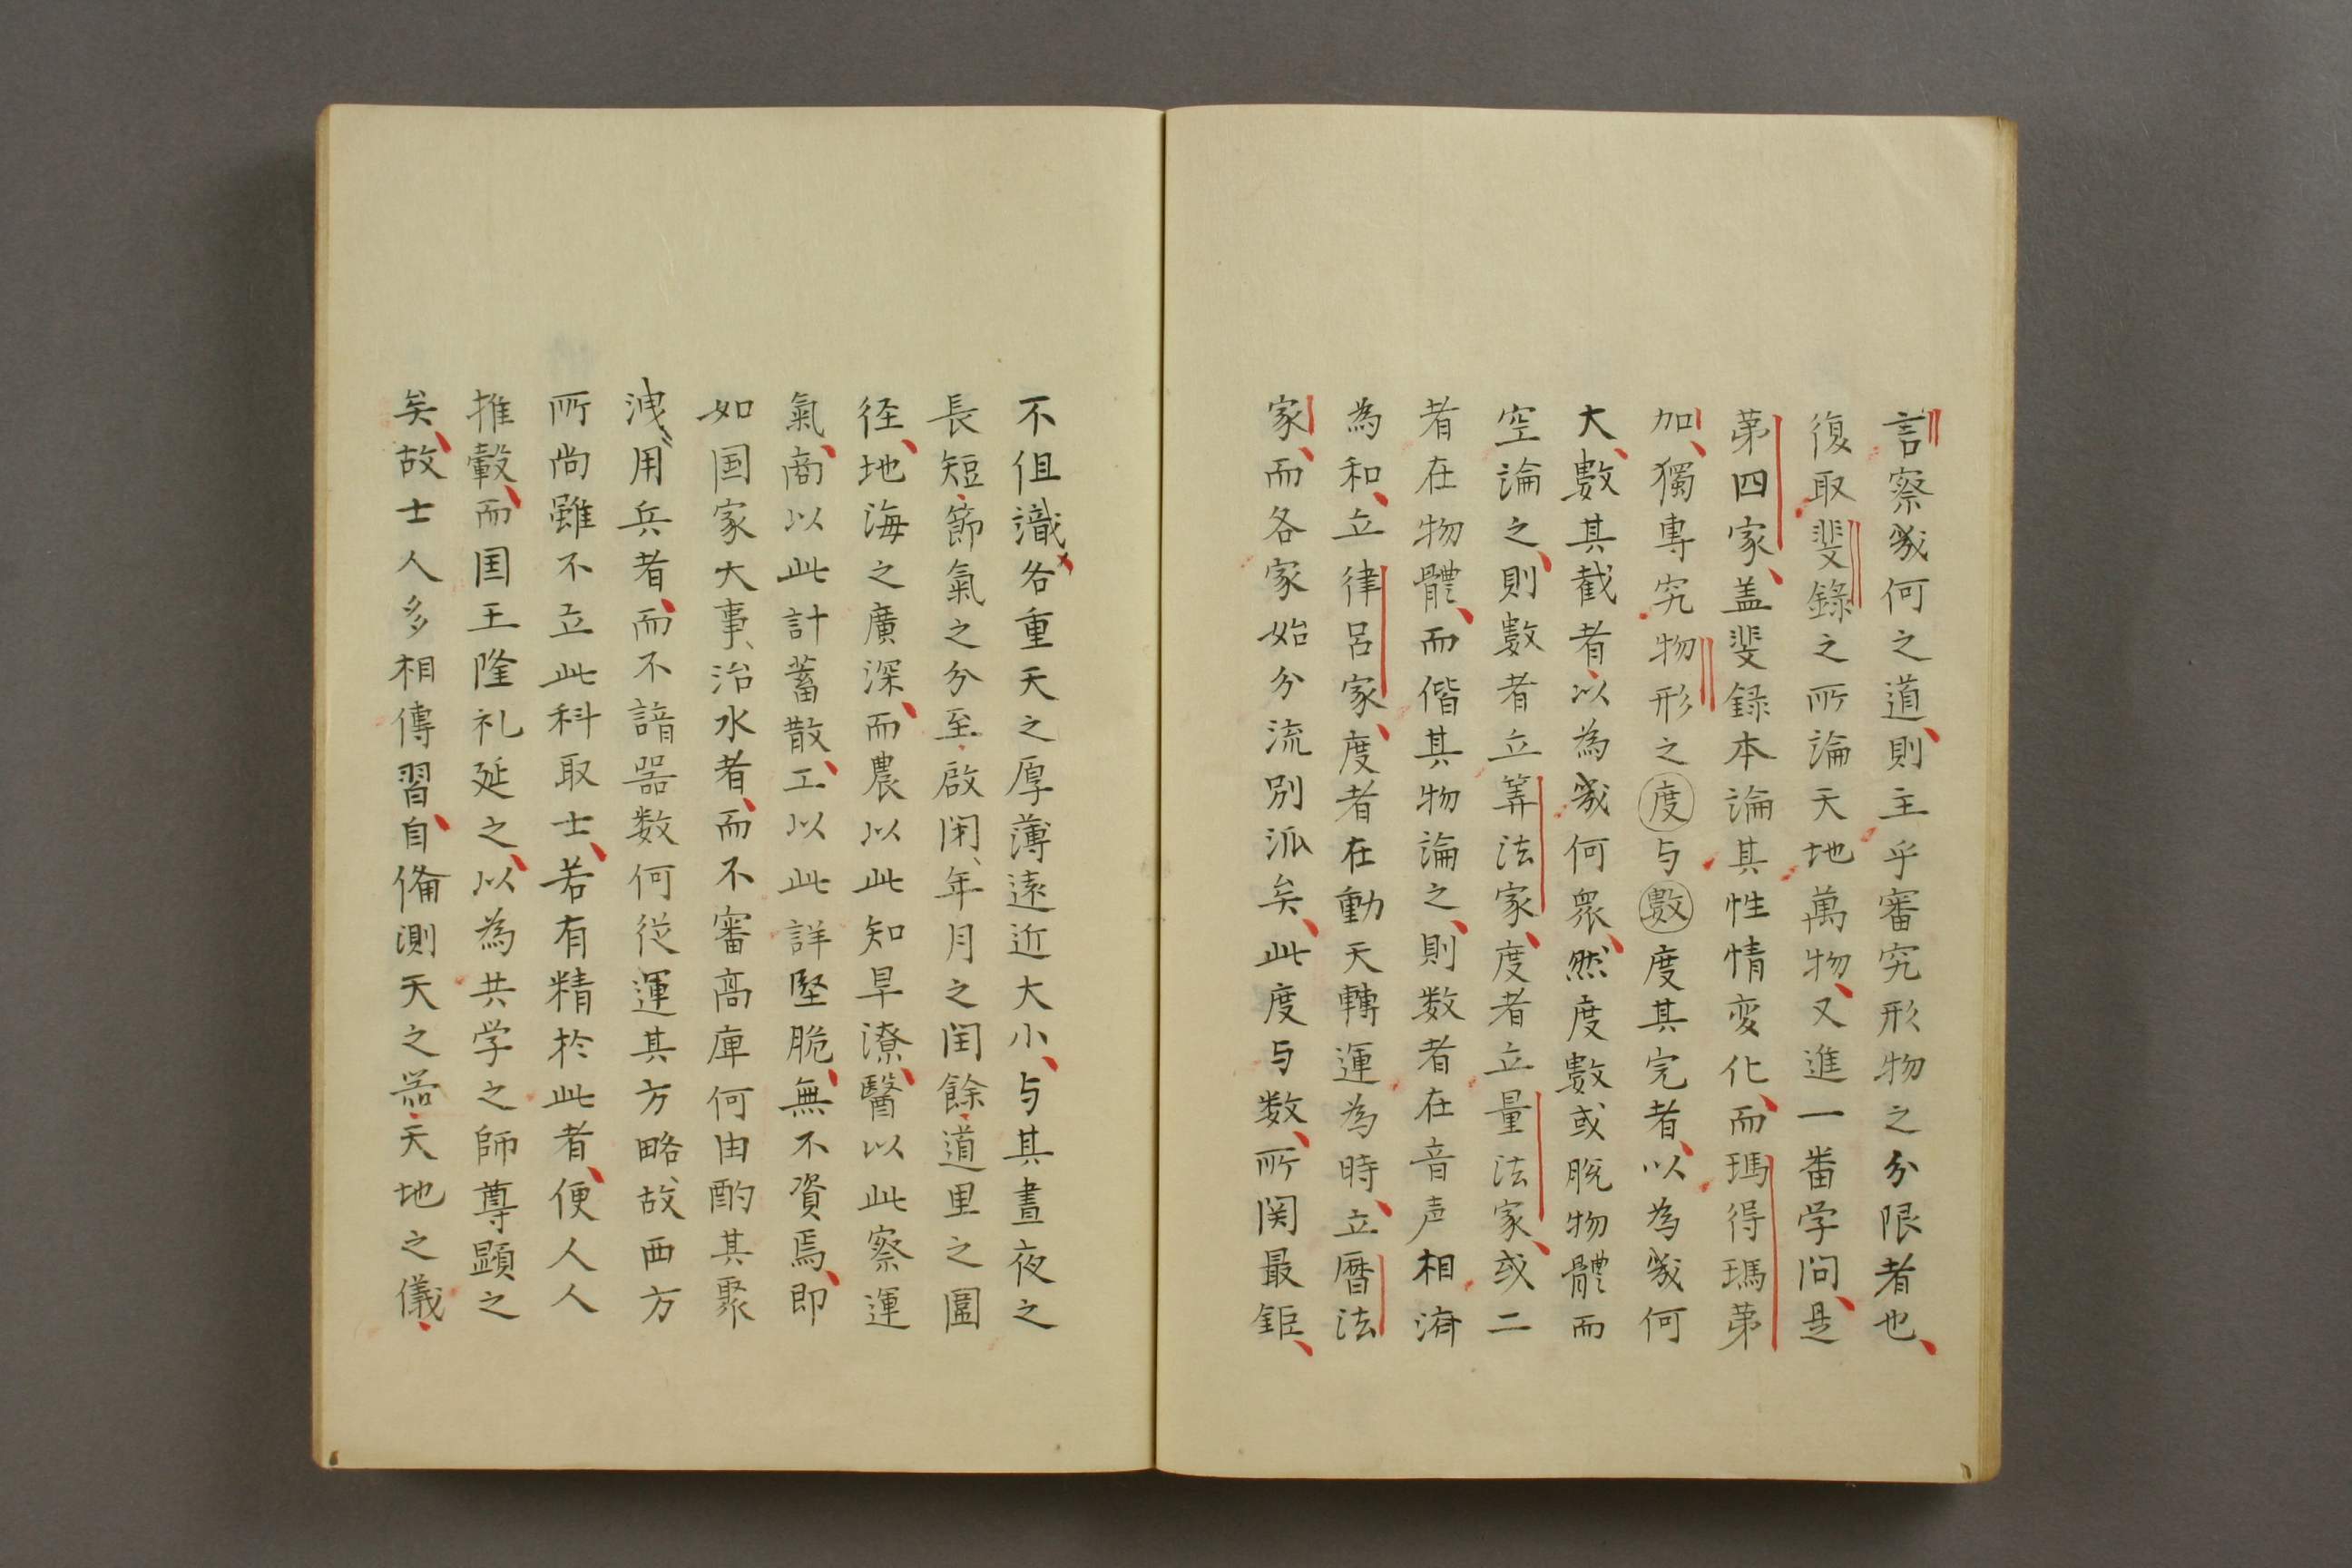 言察幾何之道、則主乎審究形物之分限者也、
復取斐錄之所論天地萬物、又進一番学問、是
第四家、盖斐録本論其性情変化、而瑪得瑪第
加、獨專究物形之度与數度其完者、以為幾何
大、數其截者、以為幾何衆、然度數或脱物體而
空論之、則數者立筭法家、度者立量法家、或二
者在物體、而偕其物論之、則数者在音声相済
為和、立律呂家、度者在動天轉運為時、立曆法
家、而各家始分流別派矣、此度与数、所関最鉅、
不但識各重天之厚薄遠近大小、与其晝夜之
長短、節氣之分至、啟閉、年月之閏餘、道里之圍
径、地海之廣深、而農以此知旱潦、醫以此察運
氣、商以此計蓄散、工以此詳堅脆、無不資焉、即
如国家大事、治水者、而不審高庳何由酌其聚
洩、用兵者、而不諳器数何従運其方略、故西方
所尚雖不立此科取士、若有精於此者、便人人
推轂、而国王隆礼延之、以為共学之師尊顕之
矣、故士人多相傳習、自備測天之器、天地之儀、